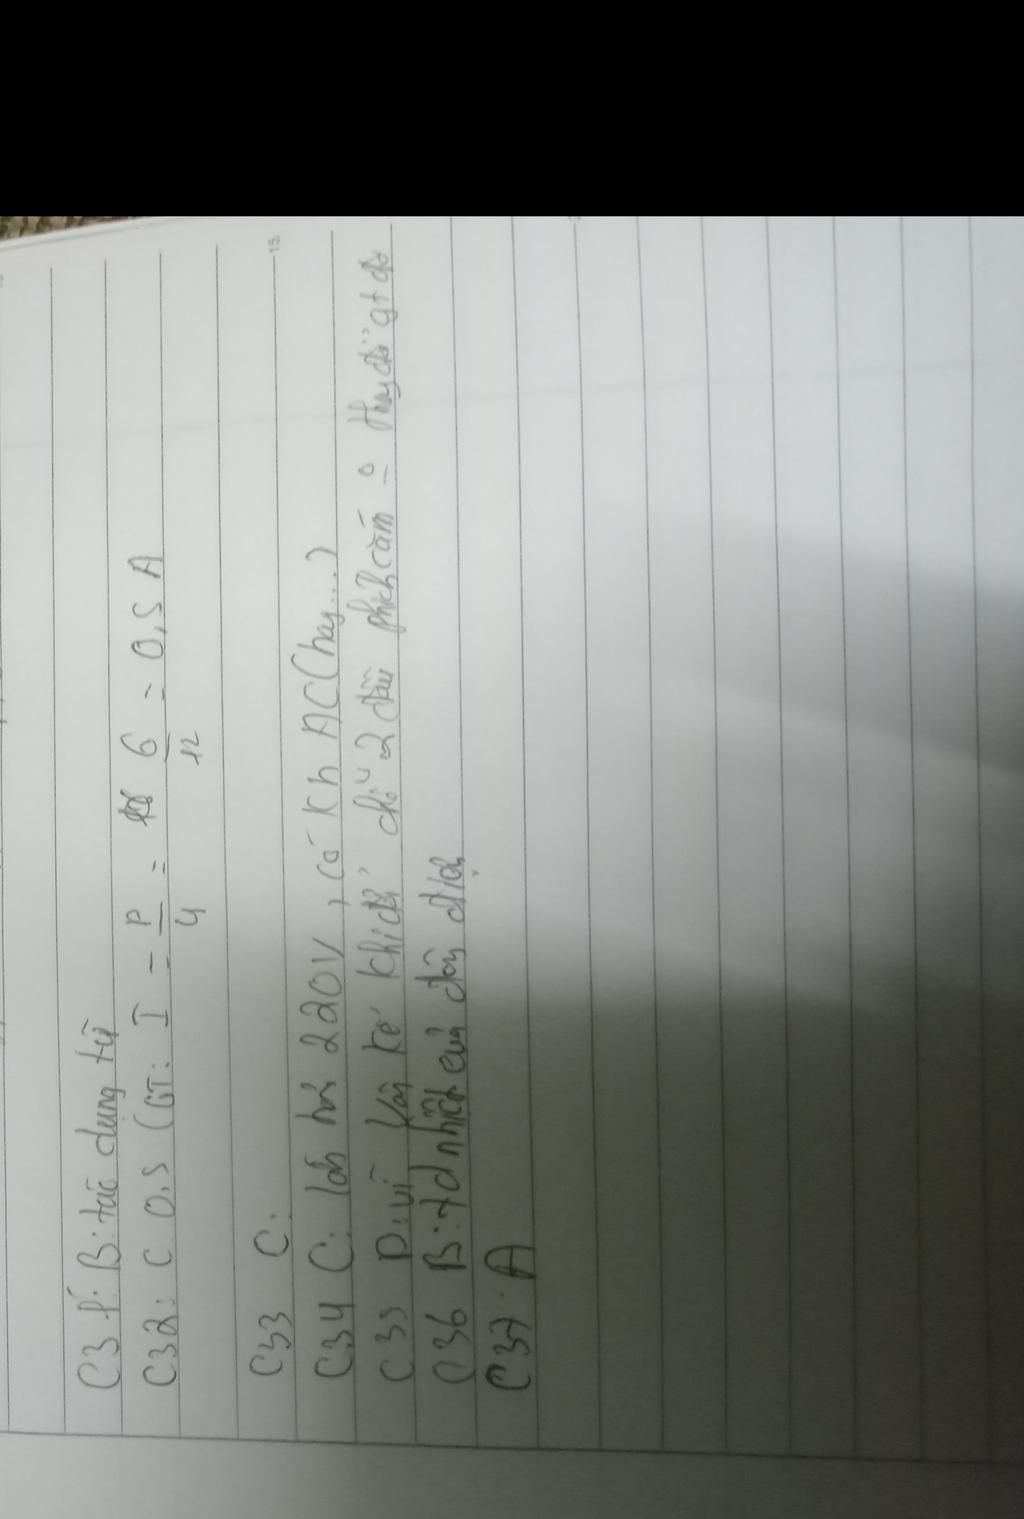 C31: B: tác dụng từ
C32: C 0,5 (GT: I = P/U = 6/12 = 0,5 A
C33 C.
C34 C: lớn hơn 220V, có kh AC (hay...)
C35 D: vì Vôn kế khi đổi chỗ 2 đầu phích cắm thay đổi gt đo
C36 B: td nhiệt của dòng điện
C37. A
15